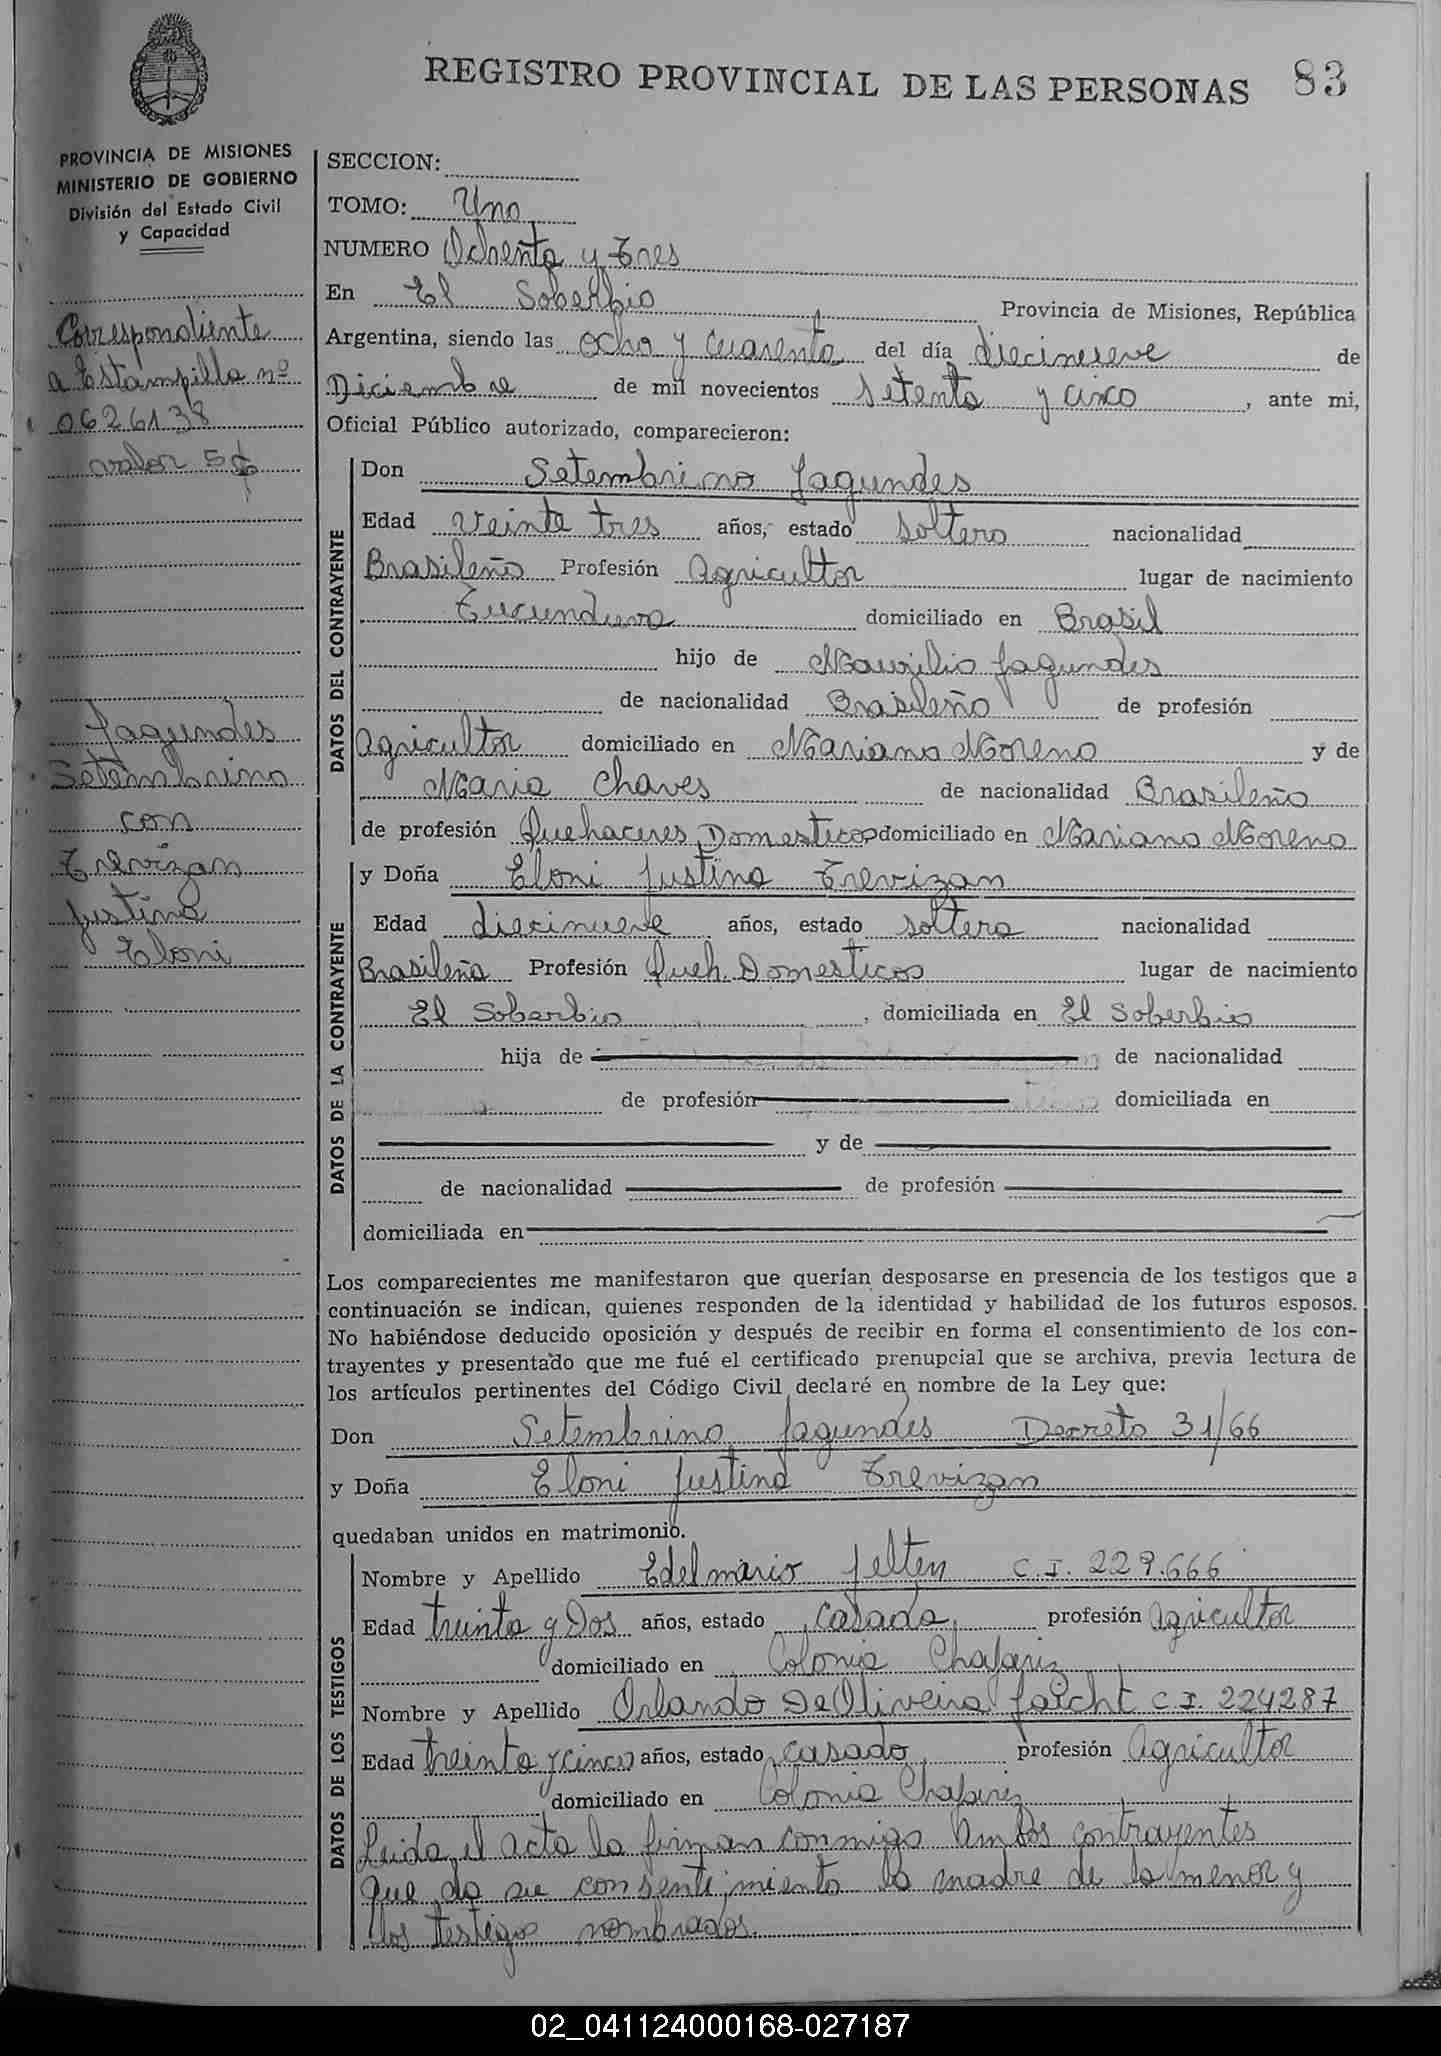 REGISTRO PROVINCIAL DE LAS PERSONAS 83
PROVINCIA DE MISIONES
MINISTERIO DE GOBIERNO
División del Estado Civil
y Capacidad
Correspondiente
a Estampilla nº
0626138
valor 5$
Fagundes
Setembrino
con
Trevizan
Justina
Eloni
SECCION:
TOMO: Uno
NUMERO Ochenta y Tres
En El Soberbio Provincia de Misiones, República
Argentina, siendo las ocho y cuarenta del día diecinueve de
Diciembre de mil novecientos setenta y cinco, ante mi,
Oficial Público autorizado, comparecieron:
DATOS DEL CONTRAYENTE
Don Setembrino Fagundes
Edad veinte tres años, estado soltero nacionalidad
Brasileño Profesión Agricultor lugar de nacimiento
Tucunduva domiciliado en Brasil
hijo de Fagundes
de nacionalidad Brasileño de profesión
Agricultor domiciliado en Mariano Moreno y de
Maria Chaves de nacionalidad Brasileño
de profesión Quehaceres Domesticos domiciliado en Mariano Moreno
DATOS DE LA CONTRAYENTE
y Doña Eloni Justina Trevizan
Edad diecinueve años, estado soltera nacionalidad
Brasileña Profesión Queh. Domesticos lugar de nacimiento
El Soberbio, domiciliada en El Soberbio
hija de de nacionalidad
de profesión domiciliada en
y de
de nacionalidad de profesión
domiciliada en
Los comparecientes me manifestaron que querían desposarse en presencia de los testigos que a
continuación se indican, quienes responden de la identidad y habilidad de los futuros esposos.
No habiéndose deducido oposición y después de recibir en forma el consentimiento de los con-
trayentes y presentado que me fué el certificado prenupcial que se archiva, previa lectura de
los artículos pertinentes del Código Civil declaré en nombre de la Ley que:
Don Setembrino Fagundes Decreto 31/66
y Doña Eloni Justina Trevizan
quedaban unidos en matrimonio.
DATOS DE LOS TESTIGOS
Nombre y Apellido Edelmario Felten C.I. 229.666
Edad treinta y Dos años, estado casado profesión Agricultor
domiciliado en Colonia Chafariz
Nombre y Apellido Orlando De Oliveira C.I. 224287
Edad treinta y cinco años, estado casado profesión Agricultor
domiciliado en Colonia Chafariz
Leida el acta la firman conmigo ambos contrayentes
que da su consentimiento la madre de la menor y
los testigos nombrados.
02_041124000168-027187